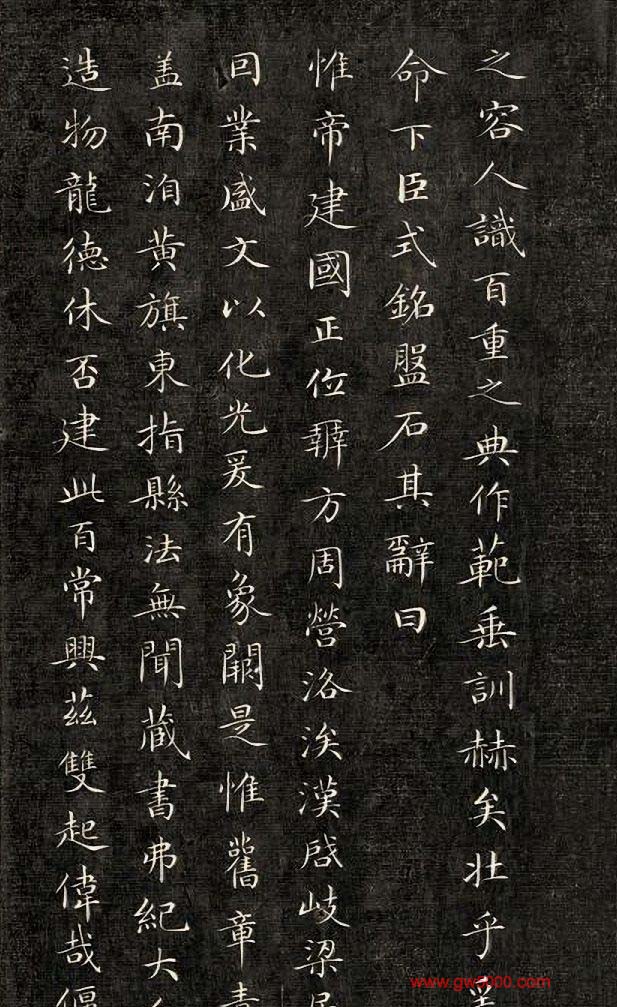 之容人識百重之典作範垂訓赫矣壯乎
命下臣式銘盤石其辭曰
惟帝建國正位辨方周營洛涘漢啓岐梁
囙業盛文以化光爰有象闕是惟舊章
盖南洎黃旗東指縣法無聞藏書弗紀大
造物龍德休否建此百常興茲雙起偉哉
www.gw3000.com